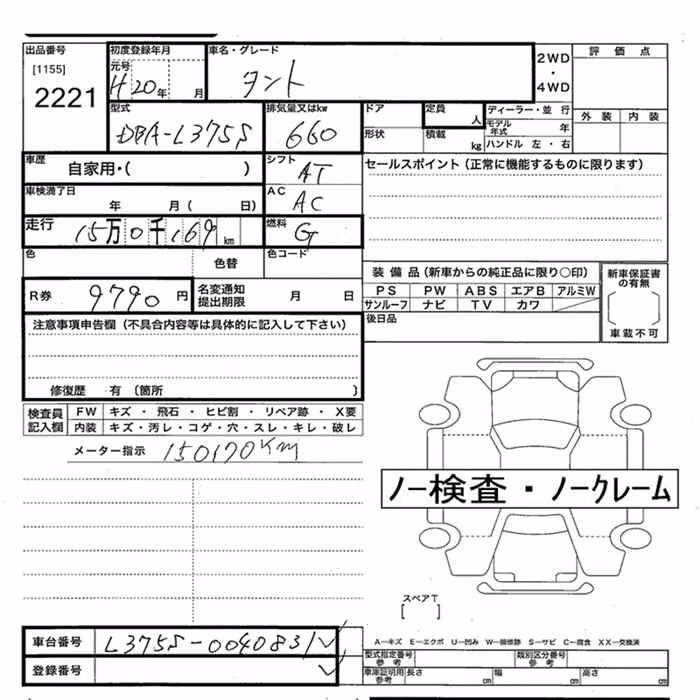 出品番号 初度登録年月 車名・グレード 2WD・4WD 評価点
[1155] 元号
2221 H20年 月 タント
型式 排気量又はkw ドア 定員 人 ディーラー・並行 外装 内装
DBA-L375S 660 形状 積載 kg モデル年式 年
ハンドル 左・右
車歴 自家用・( ) シフト AT セールスポイント(正常に機能するものに限ります)
車検満了日 年 月( 日) AC AC
走行 15万0千169km 燃料 G
色 色替 色コード
装備品(新車からの純正品に限り○印) 新車保証書の有無
R券 9790円 名変通知提出期限 月 日 PS PW ABS エアB アルミW [ ]
サンルーフ ナビ TV カワ 車載不可
注意事項申告欄(不具合内容等は具体的に記入して下さい) 後日品
修復歴 有 〔箇所 〕
検査員記入欄 FW キズ・飛石・ヒビ割・リペア跡・X要
内装 キズ・汚レ・コゲ・穴・スレ・キレ・破レ
メーター指示 150170KM
ノー検査・ノークレーム
スペアT
[ ]
車台番号 L375S-0040831
A―キズ E―エクボ U―凹み W―補修跡 S―サビ C―腐食 XX―交換済
登録番号 型式指定番号 参考 類別区分番号 参考
車庫証明用参考 長さ cm 幅 cm 高さ cm